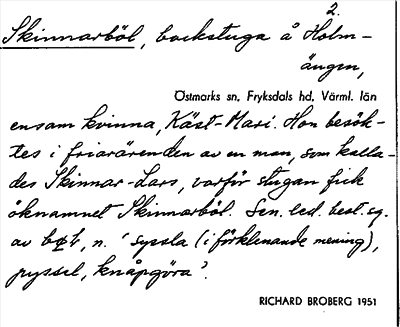 2.
Skinnarböl, backstuga å Holm-
ängen,
Östmarks sn, Fryksdals hd, Värml. län
ensam kvinna, Käst-Mari. Hon besök-
tes i friarärenden av en man, som kalla-
des Skinnar-Lars, varför stugan fick
öknamnet Skinnarböl. Sen. led. best. sg.
av bøl, n. 'syssla (i förklenande mening),
pyssel, knåpgöra'.
RICHARD BROBERG 1951